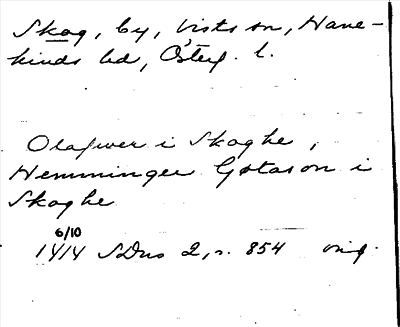 Skog, by, Vists sn, Hane-
kinds hd, Östg. l.
Olafwer i Skoghe,
Hemminger Gøtason i
Skoghe
6/10
1414 SDns 2, s. 854 orig.